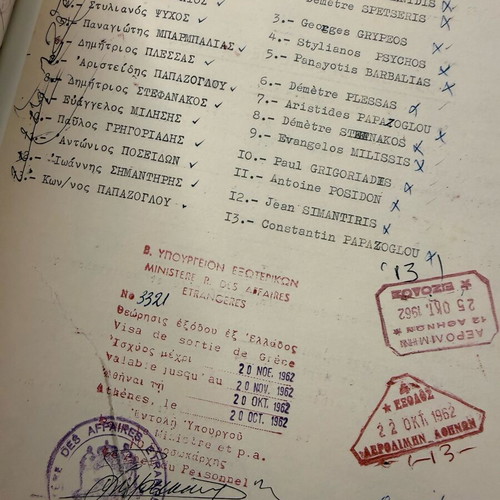 Démètre SPETSERIS
2.- Στυλιανός ΨΥΧΟΣ
3.- Georges GRYPEOS
Παναγιώτης ΜΠΑΡΜΠΑΛΙΑΣ
4.- Stylianos PSYCHOS
5.- Panayotis BARBALIAS
Δημήτριος ΠΛΕΣΣΑΣ
6.- Démètre PLESSAS
Αριστείδης ΠΑΠΑΖΟΓΛΟΥ
7.- Aristides PAPAZOGLOU
Δημήτριος ΣΤΕΦΑΝΑΚΟΣ
8.- Démètre
Εὐάγγελος ΜΙΛΗΣΗΣ
9.- Evangelos MILISSIS
Παῦλος ΓΡΗΓΟΡΙΑΔΗΣ
10.- Paul GRIGORIADIS
Ἀντώνιος ΠΟΣΕΙΔΩΝ
11.- Antoine POSIDON
Ἰωάννης ΣΗΜΑΝΤΗΡΗΣ
12.- Jean SIMANTIRIS
Κων/νος ΠΑΠΑΖΟΓΛΟΥ
13.- Constantin PAPAZOGLOU
(13)
Β. ΥΠΟΥΡΓΕΙΟΝ ΕΞΩΤΕΡΙΚΩΝ
MINISTERE R. DES AFFAIRES
ETRANGERES
No 3321
Θεώρησις ἐξόδου ἐξ Ἑλλάδος
Visa de sortie de Grèce
Ἰσχύος μέχρι 20 ΝΟΕ. 1962
Valable jusqu'au 20 NOV. 1962
Ἀθῆναι τῇ 20 ΟΚΤ. 1962
Athènes, le 20 OCT. 1962
Ἐντολῇ Ὑπουργοῦ
Ministre et p.a.
Personnel
ΕΞΟΔΟΣ
25 ΟΚΤ. 1962
ΑΕΡΟΛΙΜΗΝ
12 ΑΘΗΝΩΝ
ΕΞΟΔΟΣ
22 ΟΚΤ 1962
ΑΕΡΟΛΙΜΗΝ ΑΘΗΝΩΝ
-13-
DES AFFAIRES